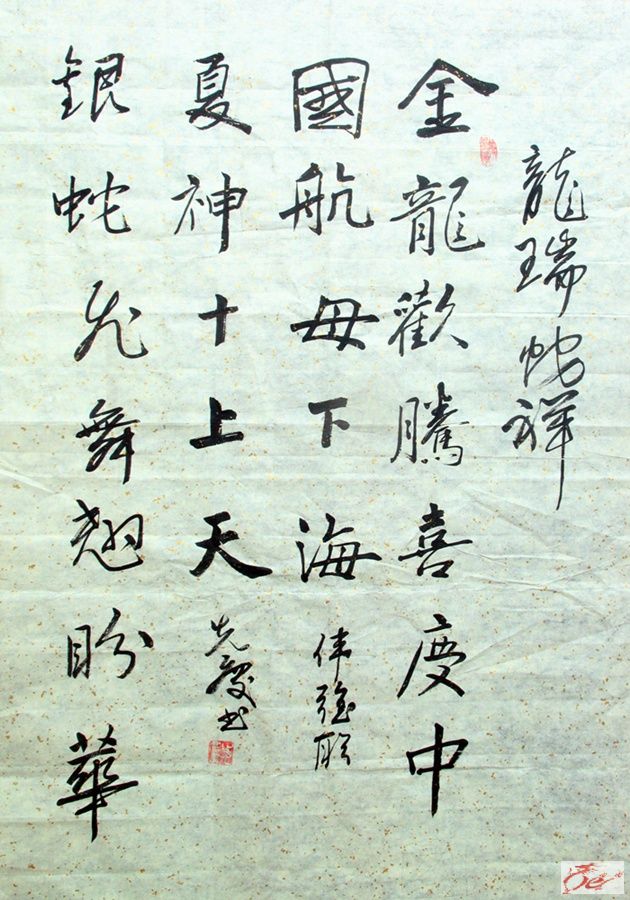 龍瑞蛇祥
金龍歡騰喜慶中
國航母下海
伟強联
銀蛇飛舞翹盼華
夏神十上天
先慶书